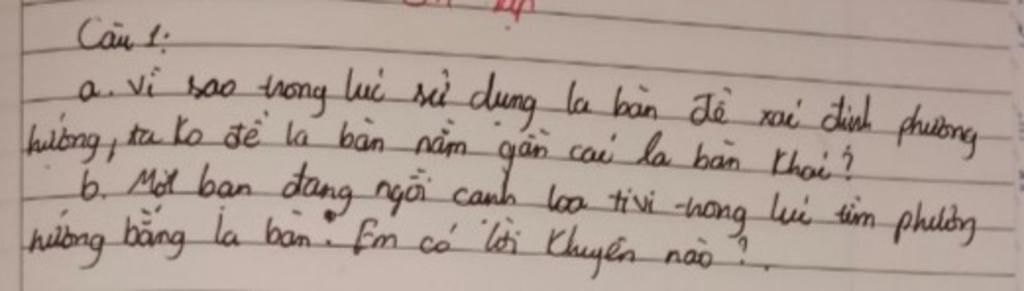 Câu 1:
a. Vì sao trong lúc sử dụng la bàn để xác định phương
hướng, ta ko để la bàn nằm gần cái la bàn khác?
b. Một bạn đang ngồi cạnh loa tivi trong lúc tìm phương
hướng bằng la bàn. Em có lời khuyên nào?